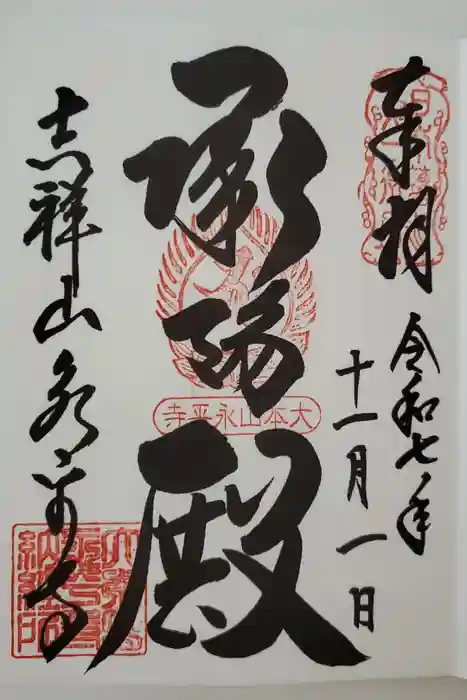 奉拝
令和七年
十一月一日
承陽殿
大本山永平寺
吉祥山永平寺